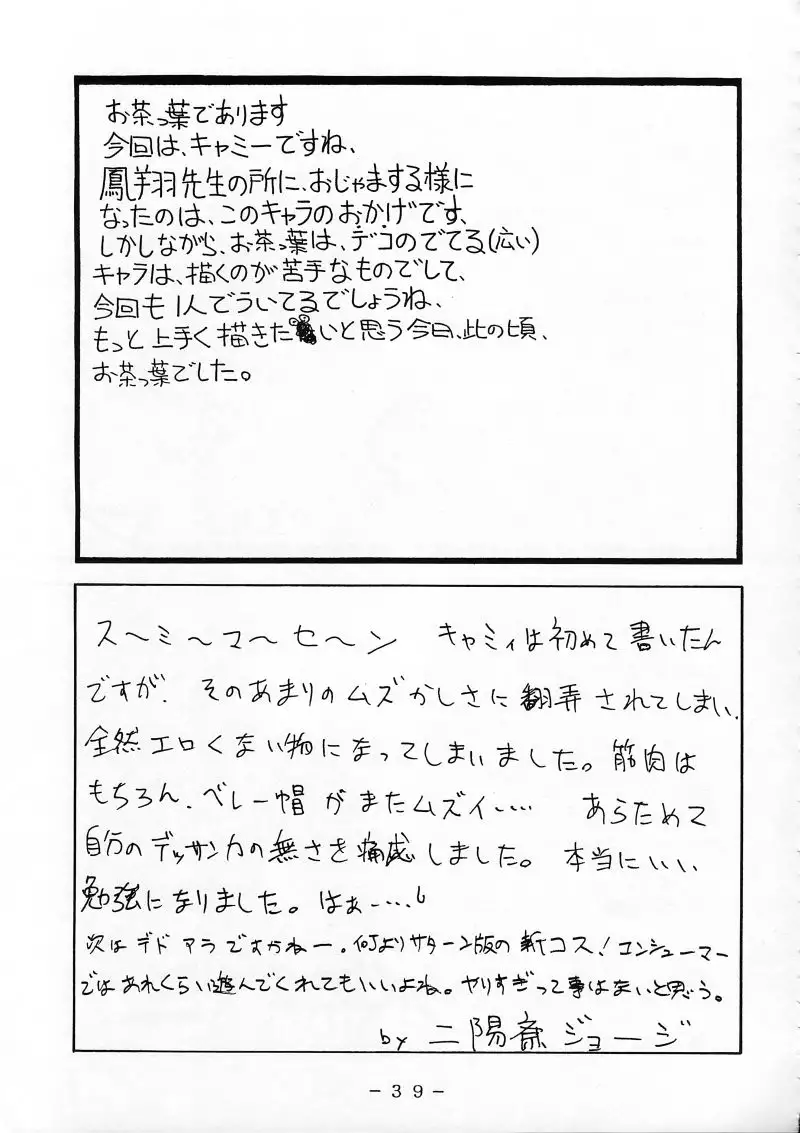 お茶っ葉であります
今回は、キャミーですね、
鳳翔羽先生の所に、おじゃまする様に
なったのは、このキャラのおかげです、
しかしながら、お茶っ葉は、デコのでてる(広い)
キャラは、描くのが苦手なものでして、
今回も1人でういてるでしょうね、
もっと上手く描きたいと思う今日、此の頃、
お茶っ葉でした。
ス〜ミ〜マ〜セ〜ン キャミィは初めて書いたん
ですが、そのあまりのムズかしさに翻弄されてしまい、
全然エロくない物になってしまいました。筋肉は
もちろん、ベレー帽がまたムズイ…… あらためて
自分のデッサン力の無さを痛感しました。本当にいい
勉強になりました。はぁ……。
次はデドアラですかねー。何よりサターン版の新コス!コンシューマー
ではあれくらい遊んでくれてもいいよね。ヤりすぎって事はないと思う。
by 二陽斎ジョージ
-39-